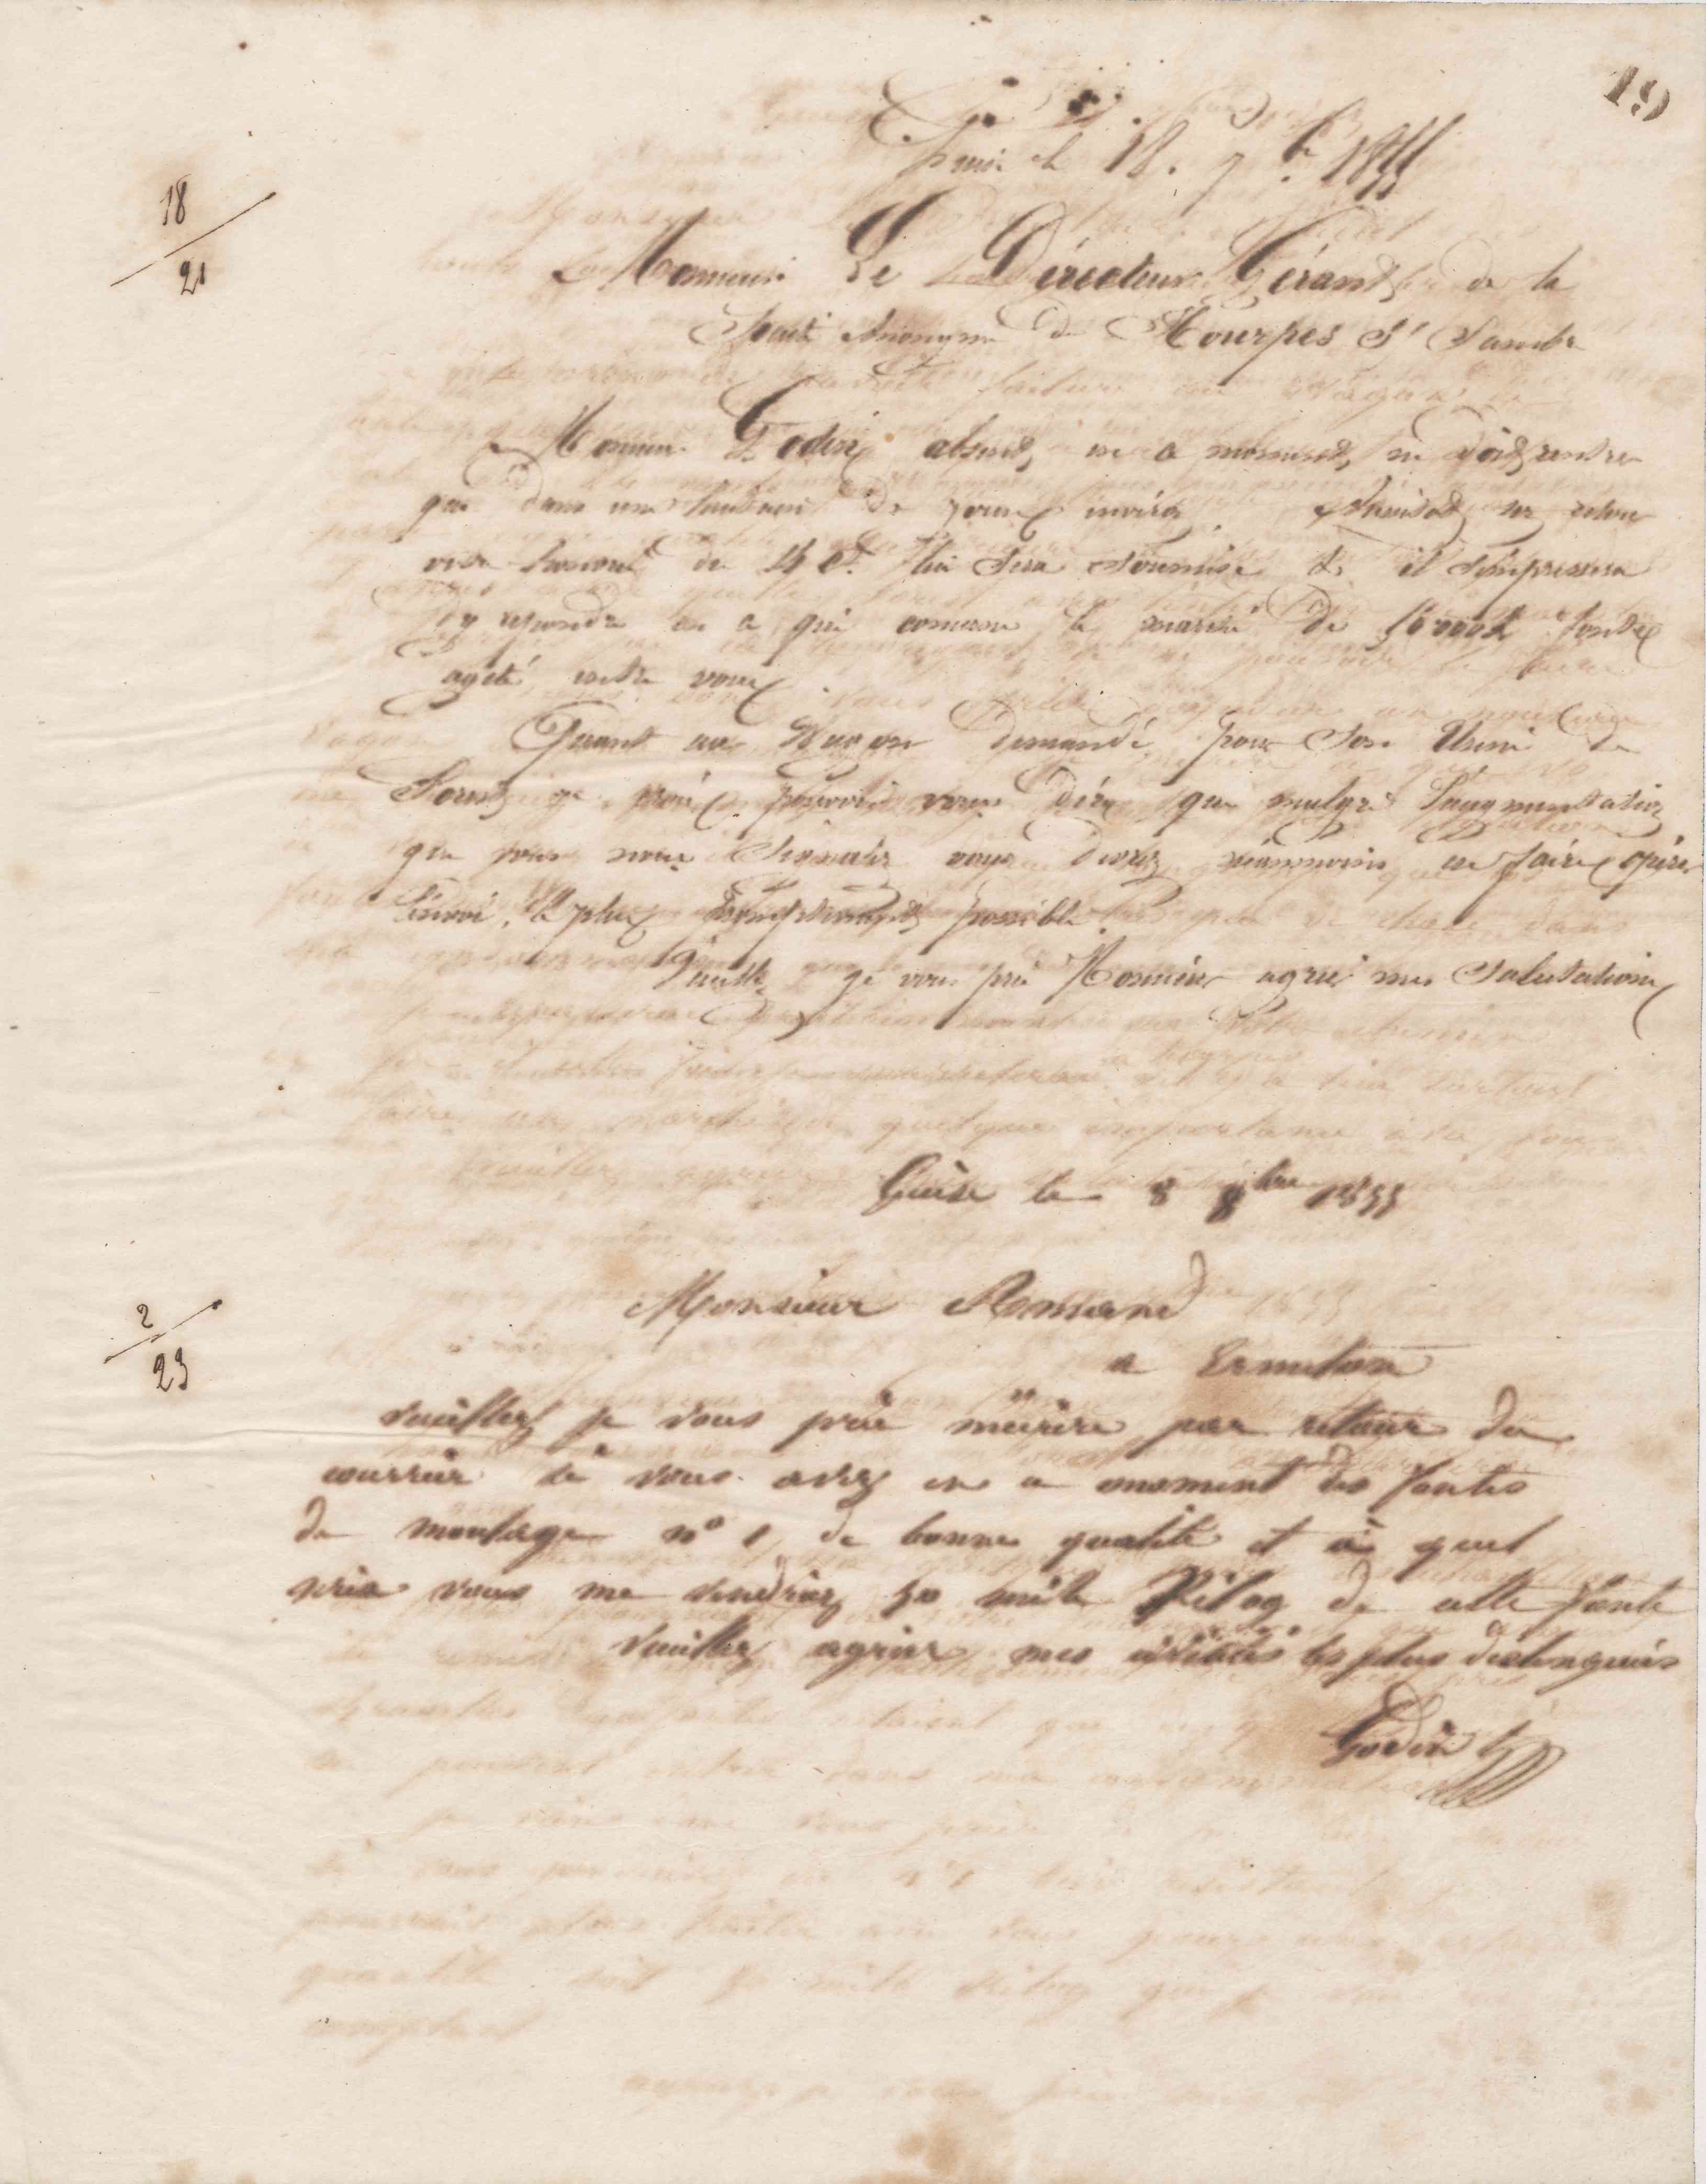 19
Guise le 18. 7bre 1855
18
21
Monsieur Le Directeur Gérant de la
Société Anonyme de Hourpes St Sambre
Monsieur Godin absent, en ce moment, ne doit rentrer
que dans une huitaine de jours environ. Aussitôt son retour
votre honorée du 14 ct. lui sera soumise & il s'empressera
d'y repondre en ce qui concerne le marché de fonte
agité entre vous.
Quant au Wagon demandé pour son Usine de
Forest je crois pouvoir vous dire que malgré l'augmentation
que vous nous vous devez néanmoins en faire opérer
l'envoi le plus promptement possible.
Veuillez je vous prie Monsieur agréer mes Salutations
Guise le 8 8bre 1855
2
23
Monsieur
a
veuillez je vous prie mécrire par retour du
courrier si vous avez en ce moment des fontes
de moulage n° 1 de bonne qualité et à quel
prix vous me vendriez 50 mille Kilog de cette fonte
Veuillez agréer mes civilités les plus distinguées
Godin